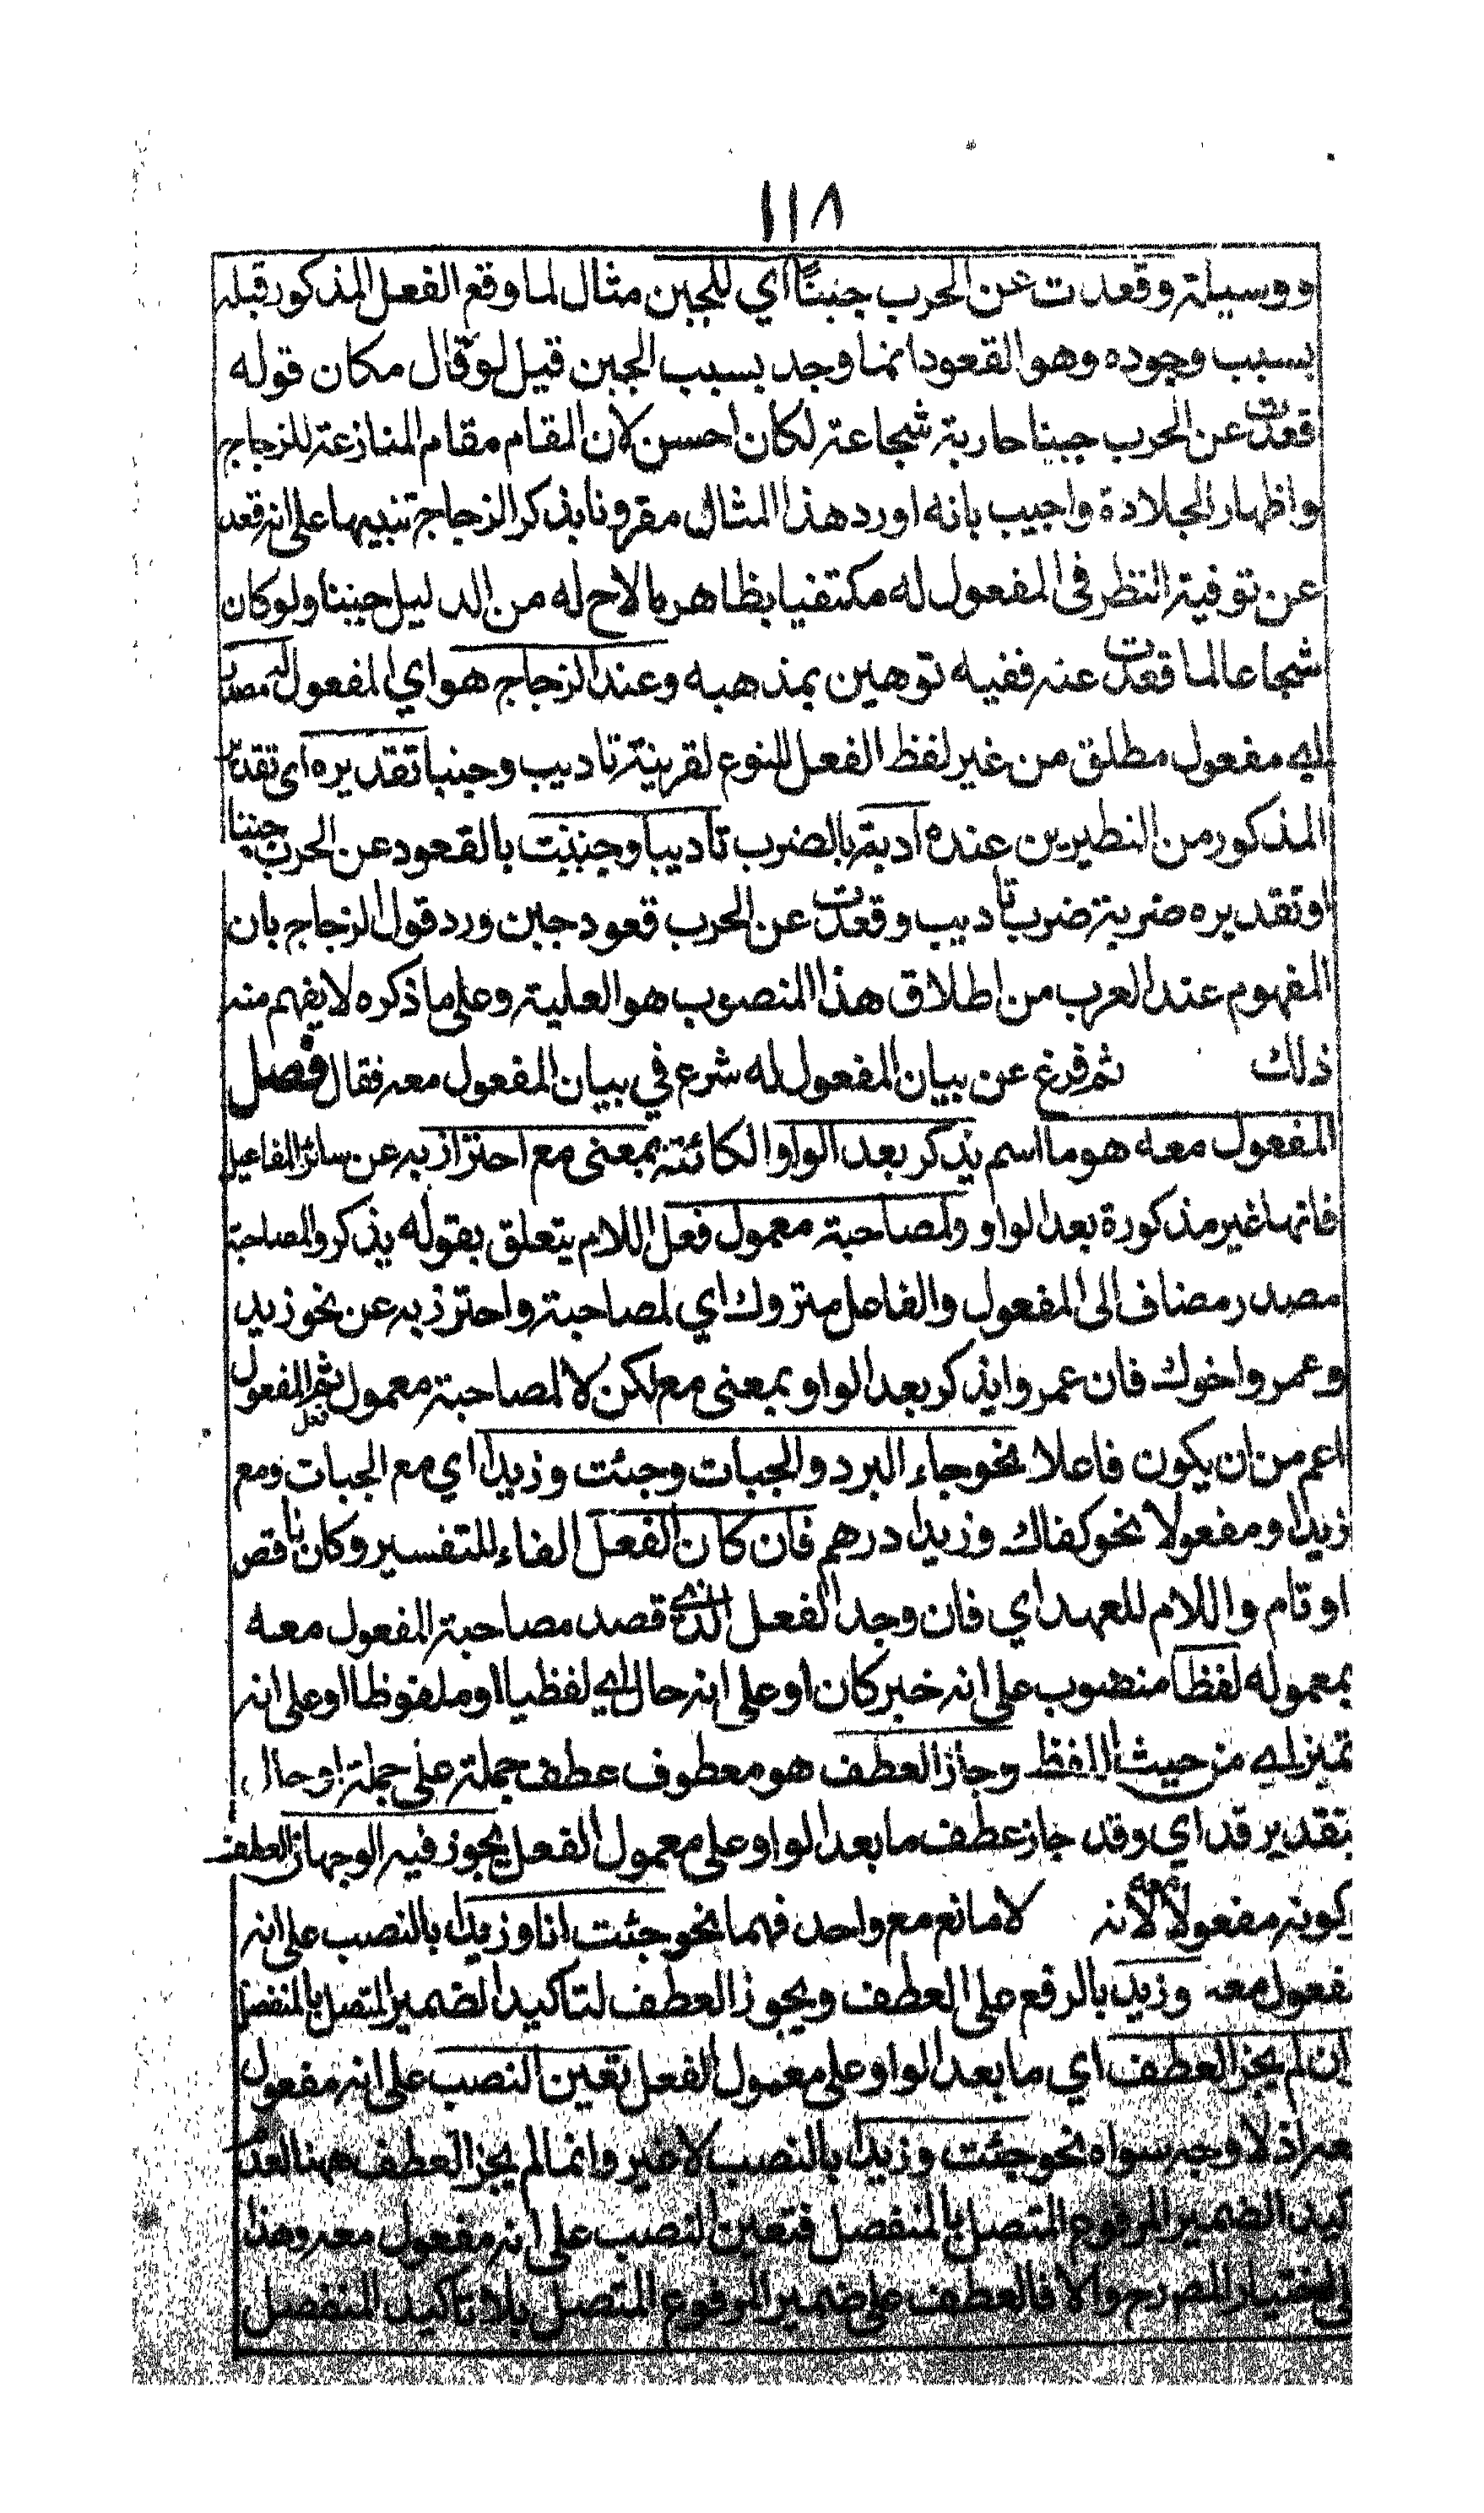 ١١٨
ووسيلته وقعدت عن الحرب جبنًا اي للجبن مثال لما وقع الفعل المذكور قبله
بسبب وجوده وهو القعود انما وجد بسبب الجبن قيل لو قال مكان قوله
قعدت عن الحرب جبنا حاربته شجاعة لكان احسن لان المقام مقام المنازعة للزجاج
واظهار الجلادة واجيب بانه اورد هذا المثال مقرونا بذكر الزجاج تنبيها على انه قعد
عن توفية النظر في المفعول له مكتفيا بظاهر ما لاح له من الدليل جبنا ولو كان
شجاعا لما قعدت عنه ففيه توهين بمذهبه وعند الزجاج هو اي المفعول له مصدر
اي مفعول مطلق من غير لفظ الفعل للنوع لقرينة تاديب وجبنا تقديره اي تقدير
المذكور من النظيرين عنده ادبته بالضرب تأديبا وجبنت بالقعود عن الحرب جبنا
او تقديره ضربته ضرب تاديب وقعدت عن الحرب قعود جبن ورد قول الزجاج بان
المفهوم عند العرب من اطلاق هذا المنصوب هو العلية وعلى ما ذكره لا يفهم منه
ذلك ثم فرغ عن بيان المفعول له شرع في بيان المفعول معه فقال فصل
المفعول معه هو ما اسم يذكر بعد الواو الكائنة بمعنى مع احترز به عن سائر المفاعيل
فانها غير مذكورة بعد الواو ولمصاحبة معمول فعل اللام يتعلق بقوله يذكر والمصاحبة
مصدر مضاف الى المفعول والفاعل متروك اي لمصاحبته واحترز به عن نحو زيد
وعمرو اخوك فان عمروا يذكر بعد الواو بمعنى مع لكن لا لمصاحبة معمول فعل ثم المفعول
اعم من ان يكون فاعلا نحو جاء البرد والجبات وجئت وزيدا اي مع الجبات ومع
زيدا ومفعولا نحو كفاك وزيدا درهم فان كان الفعل الفاء للتفسير وكان ناقص
او تام واللام للعهد اي فان وجد الفعل الذي قصد مصاحبة المفعول معه
بمعموله لفظا منصوب على انه خبر كان او على انه حال اي لفظيا او ملفوظا او على انه
تميز اي من حيث اللفظ وجاز العطف هو معطوف عطف جملة على جملة او حال
بتقدير قد اي وقد جاز عطف ما بعد الواو على معمول الفعل يجوز فيه الوجهان العطف
وكونه مفعولا معه لانه لا مانع مع واحد فهما نحو جئت انا وزيدا بالنصب على انه
مفعول معه وزيد بالرفع على العطف ويجوز العطف لتاكيد الضمير المتصل بالمنفصل
ان لم يجز العطف اي ما بعد الواو على معمول الفعل تعين النصب على انه مفعول
معه اذ لا وجه سواه نحو جئت وزيدا بالنصب لا غير وانما لم يجز العطف ههنا لعدم
كيد الضمير المرفوع المتصل بالمنفصل فتعين النصب على انه مفعول معه وهذا
الى اختيار المص رح والا فالعطف على ضمير المرفوع المتصل بلا تاكيد المنفصل